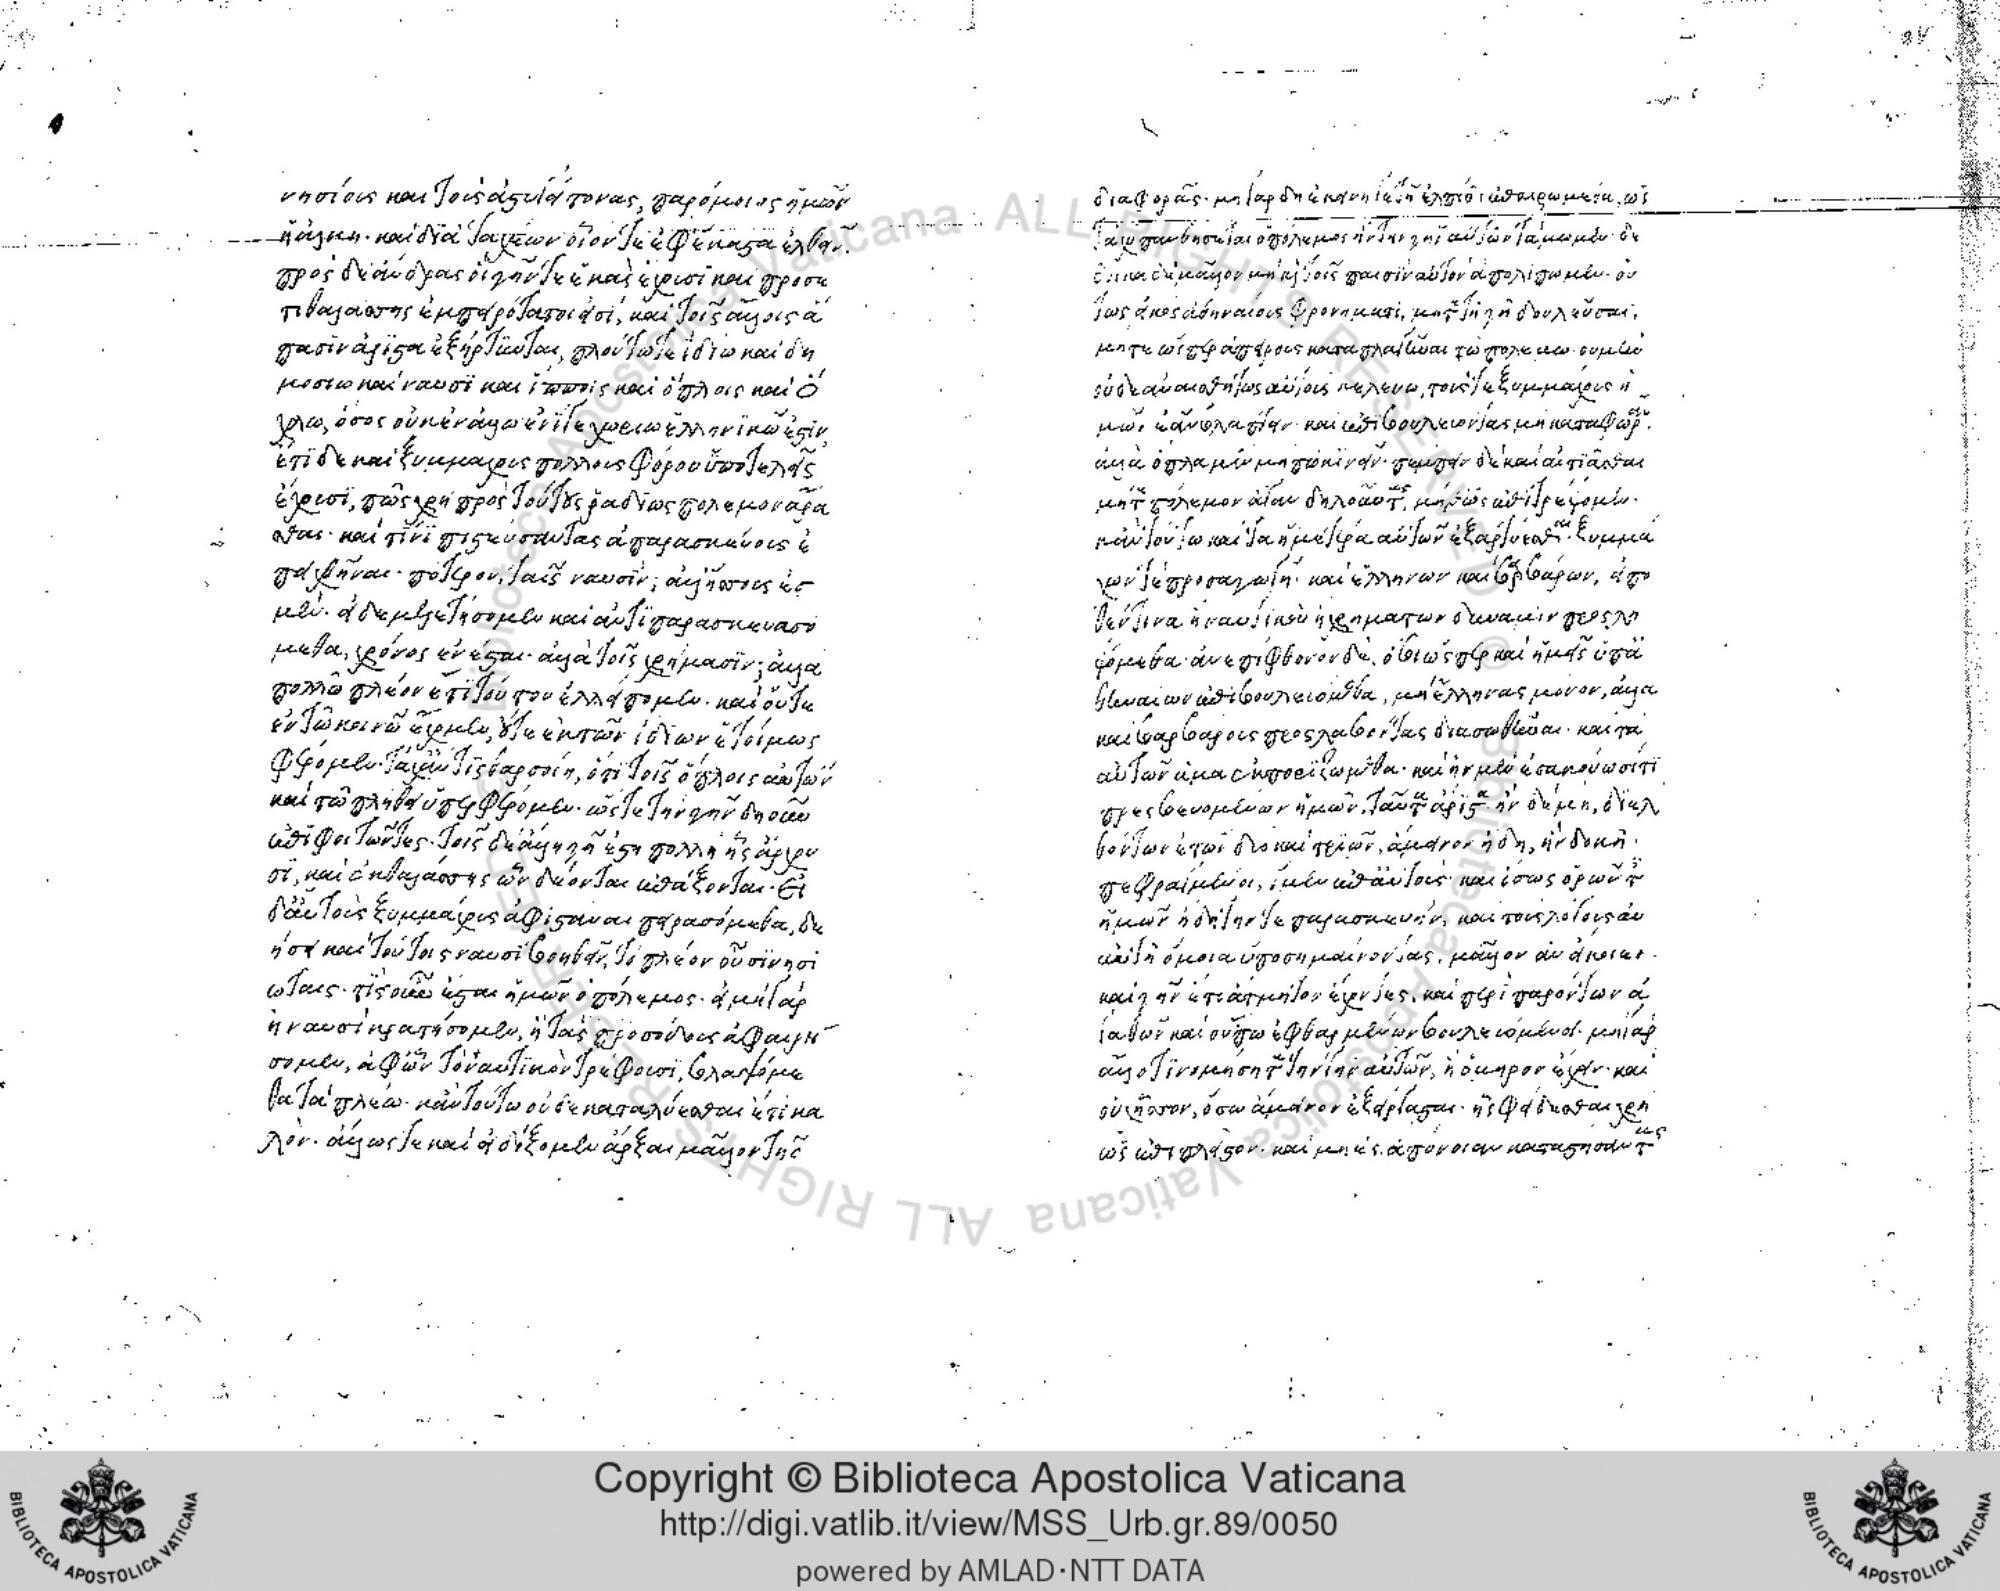 νησίους καὶ τοὺς ἀστυγείτονας, παρόμοιος ἡμῶν
ἡ ἀλκη· καὶ διὰ ταχέων οἷον τε ἐφ' ἕκαστα ἐλθεῖν·
πρὸς δὲ ἄνδρας οἳ γῆν τε ἑκὰς ἔχουσι καὶ προσέ
τι θαλάσσης ἐμπειρότατοι εἰσί, καὶ τοῖς ἄλλοις ἅ
πασιν ἄριστα ἐξήρτυνται, πλούτω τε ἰδίω καὶ δη
μοσίω καὶ ναυσὶ καὶ ἵπποις καὶ ὅπλοις καὶ ὄ
χλω, ὅσος οὐκ ἐν ἄλλω ἑνί γε χωρίω ἑλληνικῶ ἐστίν,
ἔτι δὲ καὶ ξυμμάχους πολλοὺς φόρου ὑποτελεῖς
ἔχουσι, πῶς χρὴ πρὸς τούτους ῥαδίως πόλεμον ἄρα
σθαι· καὶ τίνι πιστεύσαντας ἀπαρασκεύους ἐ
πειχθῆναι· πότερον, ταῖς ναυσίν; ἀλλ' ἥσσους ἐσ
μέν· εἰ δὲ μελετήσομεν καὶ ἀντιπαρασκευασό
μεθα, χρόνος ἐνέσται· ἀλλὰ τοῖς χρήμασιν; ἀλλὰ
πολλῶ πλέον ἔτι τούτου ἐλλείπομεν· καὶ οὔτε
ἐν τῶ κοινῶ ἔχομεν, οὔτε ἐκ τῶν ἰδίων ἑτοίμως
φέρομεν· τάχ' ἄν τις θαρσοίη, ὅτι τοῖς ὅπλοις αὐτῶν
καὶ τῶ πλήθει ὑπερφέρομεν· ὥστε τὴν γῆν δηιοῦν
ἐπιφοιτῶντες· τοῖς δὲ ἄλλη γῆ ἐστι πολλὴ ἧς ἄρχου
σι, καὶ ἐκ θαλάσσης ὧν δέονται ἐπάξονται· Εἰ
δ' αὖ τοὺς ξυμμάχους ἀφιστάναι πειρασόμεθα, δε
ήσει καὶ τούτοις ναυσὶ βοηθεῖν, τὸ πλέον οὖσι νησι
ώταις· τίς οὖν ἔσται ἡμῶν ὁ πόλεμος· εἰ μὴ γὰρ
ἢ ναυσὶ κρατήσομεν, ἢ τὰς προσόδους ἀφαιρή
σομεν, ἀφ' ὧν τὸ ναυτικὸν τρέφουσι, βλαψόμε
θα τὰ πλέω· κἀν τούτω οὐδὲ καταλύεσθαι ἔτι κα
λόν· ἄλλως τε καὶ εἰ δόξομεν ἄρξαι μᾶλλον τῆς
διαφορᾶς· μὴ γὰρ δὴ ἐκείνη γε τῆ ἐλπίδι ἐπαιρώμεθα, ὡς
ταχὺ παυθήσεται ὁ πόλεμος ἢν τὴν γῆν αὐτῶν τάμωμεν· δέ
δοικα δὲ μᾶλλον μὴ καὶ τοῖς παισὶν αὐτὸν ἀπολίπωμεν· οὕ
τως εἰκὸς ἀθηναίους φρονήματι, μήτε τῆ γῆ δουλεῦσαι,
μήτε ὥσπερ ἀπείρους καταπλαγῆναι τῶ πολέμω· οὐ μὴν
οὐδὲ ἀναισθήτως αὐτοὺς κελεύω, τούς τε ξυμμάχους ἡ
μῶν ἐᾶν βλάπτειν· καὶ ἐπιβουλεύοντας μὴ καταφωρᾶν·
ἀλλὰ ὅπλα μὲν μήπω κινεῖν· πέμπειν δὲ καὶ αἰτιᾶσθαι
μήτε πόλεμον ἄγαν δηλοῦντας, μήθ' ὡς ἐπιτρέψομεν·
κἀν τούτω καὶ τὰ ἡμέτερα αὐτῶν ἐξαρτύεσθαι· ξυμμά
χων τε προσαγωγῆ· καὶ ἑλλήνων καὶ βαρβάρων, εἴ πο
θέν τινα ἢ ναυτικοῦ ἢ χρημάτων δύναμιν προςλη
ψόμεθα· ἀνεπίφθονον δὲ, ὅσοι ὥσπερ καὶ ἡμεῖς ὑπ' ἀ
θηναίων ἐπιβουλευόμεθα, μὴ ἕλληνας μόνον, ἀλλὰ
καὶ βαρβάρους προςλαβόντας διασωθῆναι· καὶ τὰ
αὐτῶν ἅμα ἐκποριζώμεθα· καὶ ἢν μὲν ἐσακούωσί τι
πρεσβευομένων ἡμῶν, ταῦτα ἄριστα· ἢν δὲ μὴ, διελ
θόντων ἐτῶν δύο καὶ τριῶν, ἄμεινον ἤδη, ἢν δοκῆ·
πεφραγμένοι, ἴμεν ἐπ' αὐτούς· καὶ ἴσως ὁρῶντες
ἡμῶν ἤδη τήν τε παρασκευήν, καὶ τοὺς λόγους αὐ
τῆ ὅμοια ὑποσημαίνοντας, μᾶλλον ἂν εἴκοιεν·
καὶ γῆν ἔτι ἄτμητον ἔχοντες, καὶ περὶ παρόντων ἀ
γαθῶν καὶ οὔπω ἐφθαρμένων βουλευόμενοι· μὴ γὰρ
ἄλλο τι νομίσητε τὴν γῆν αὐτῶν, ἢ ὅμηρον ἔχειν· καὶ
οὐχ ἧσσον, ὅσω ἄμεινον ἐξείργασται· ἧς φείδεσθαι χρὴ
ὡς ἐπὶ πλεῖστον· καὶ μὴ ἐς ἀπόνοιαν καταστήσαντας
Copyright © Biblioteca Apostolica Vaticana
http://digi.vatlib.it/view/MSS_Urb.gr.89/0050
powered by AMLAD·NTT DATA
BIBLIOTECA APOSTOLICA VATICANA
BIBLIOTECA APOSTOLICA VATICANA